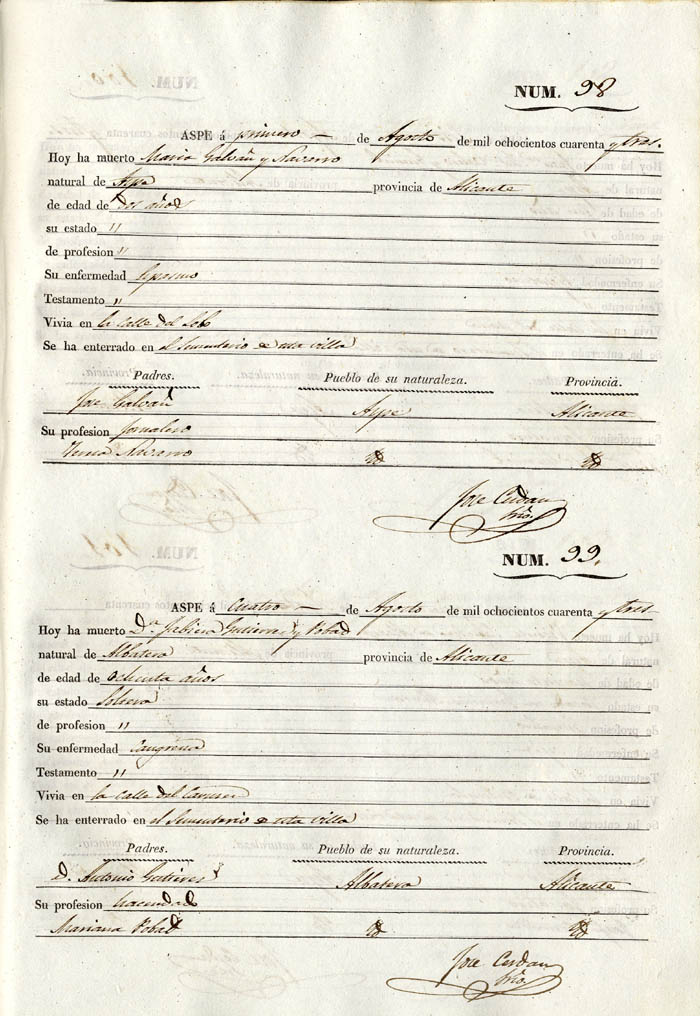 NUM. 98
ASPE á primero de Agosto de mil ochocientos cuarenta y tres.
Hoy ha muerto Maria Galvañ y Navarro
natural de Aspe provincia de Alicante
de edad de dos años
su estado "
de profesion "
Su enfermedad
Testamento "
Vivia en la Calle del Lobo
Se ha enterrado en el Sementerio de esta villa
Padres. Pueblo de su naturaleza. Provincia.
Jose Galvañ Aspe Alicante
Su profesion Jornalero
Teresa Navarro id id
Jose Cerdan
Srio.
NUM. 99.
ASPE á Cuatro de Agosto de mil ochocientos cuarenta y tres
Hoy ha muerto D.ª Gutierrez y
natural de Albatera provincia de Alicante
de edad de ochenta años
su estado Soltera
de profesion "
Su enfermedad Cangrena
Testamento "
Vivia en la Calle del
Se ha enterrado en el Sementerio de esta villa
Padres. Pueblo de su naturaleza. Provincia.
D. Antonio Gutierrez Albatera Alicante
Su profesion hacendado
Mariana id id
Jose Cerdan
Srio.